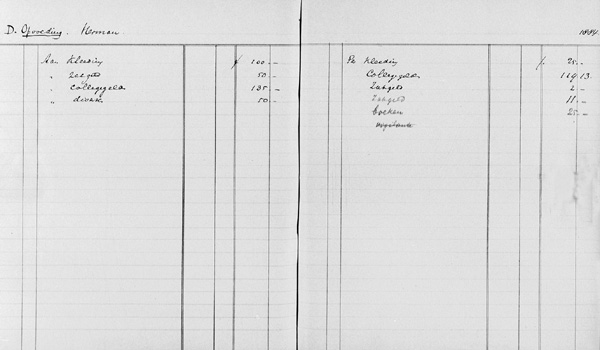 D. Opvoeding. Herman.
1884.
Aan Kleeding f 100 –
" Zakgeld 50 –
" Collegegeld 135 –
" divers 50 –
Per Kleeding f 25 –
Collegegeld 119 13
Zakgeld 2 –
Zakgeld 11 –
boeken 25 –